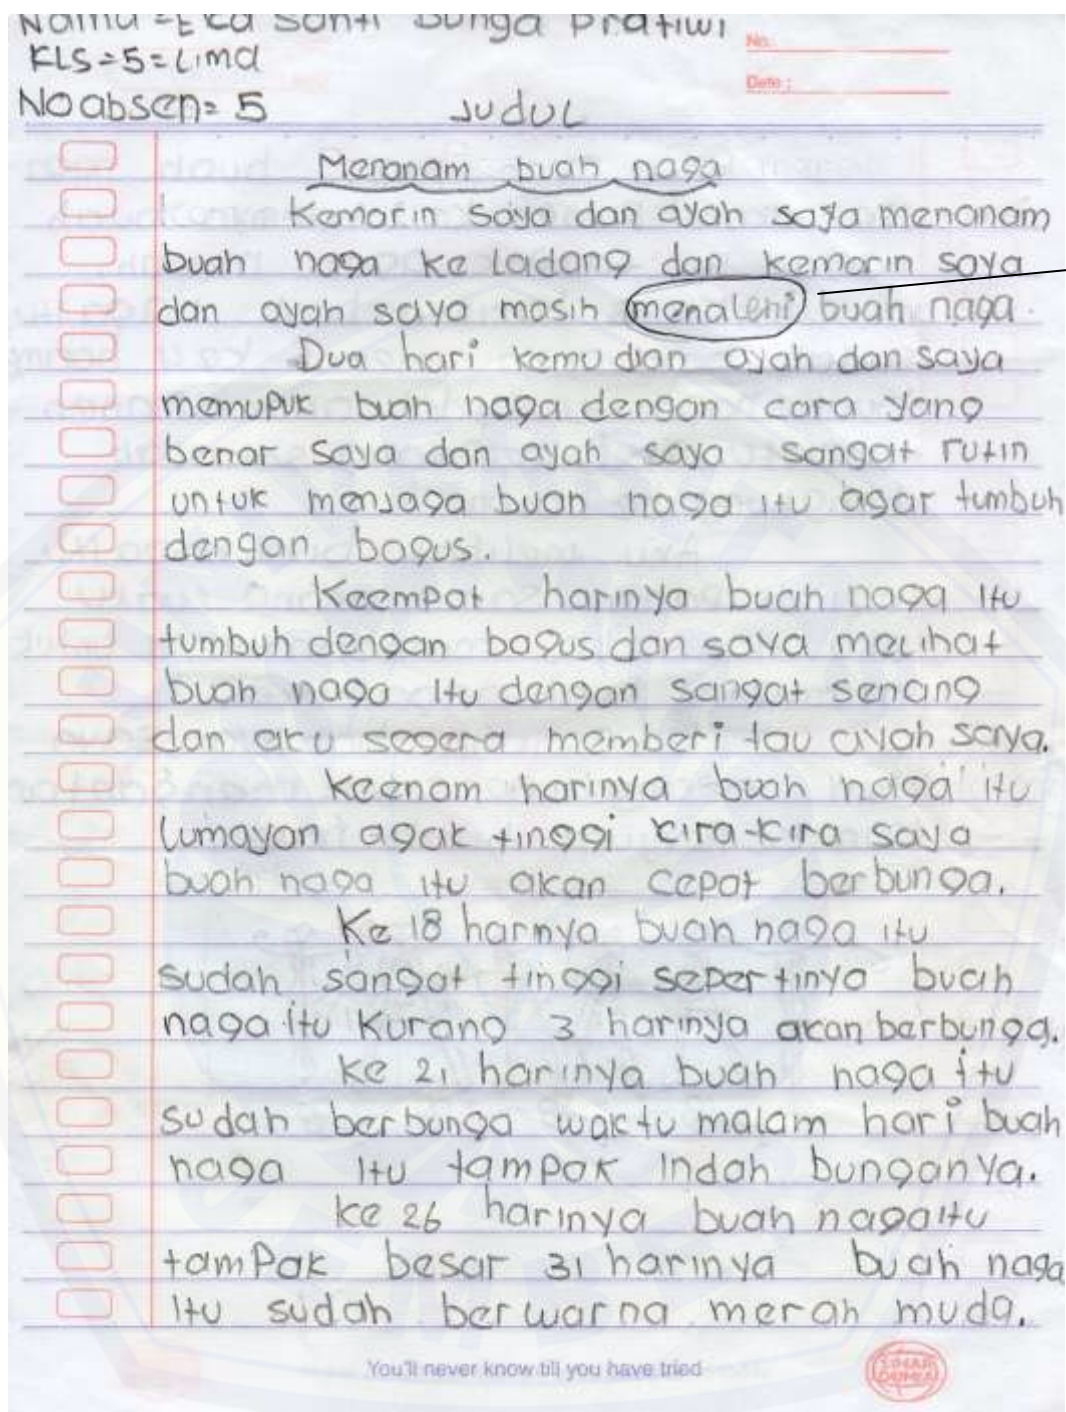 Nama = Eka Santi Bunga Pratiwi
KLS = 5 = Lima
No absen = 5
No:
Date :
Judul
Menanam buah naga
Kemarin saya dan ayah saya menanam
buah naga ke ladang dan kemarin saya
dan ayah saya masih menaleni buah naga.
Dua hari kemudian ayah dan saya
memupuk buah naga dengan cara yang
benar saya dan ayah saya sangat rutin
untuk menjaga buah naga itu agar tumbuh
dengan bagus.
Keempat harinya buah naga itu
tumbuh dengan bagus dan saya melihat
buah naga itu dengan sangat senang
dan aku segera memberi tau ayah saya.
Keenam harinya buah naga itu
lumayan agak tinggi kira-kira saya
buah naga itu akan cepat berbunga.
Ke 18 harnya buah naga itu
sudah sangat tinggi sepertinya buah
naga itu kurang 3 harinya akan berbunga.
Ke 21 harinya buah naga itu
sudah berbunga waktu malam hari buah
naga itu tampak indah bunganya.
Ke 26 harinya buah naga itu
tampak besar 31 harinya buah naga
itu sudah berwarna merah muda.
You'll never know till you have tried
SINAR DUNIA